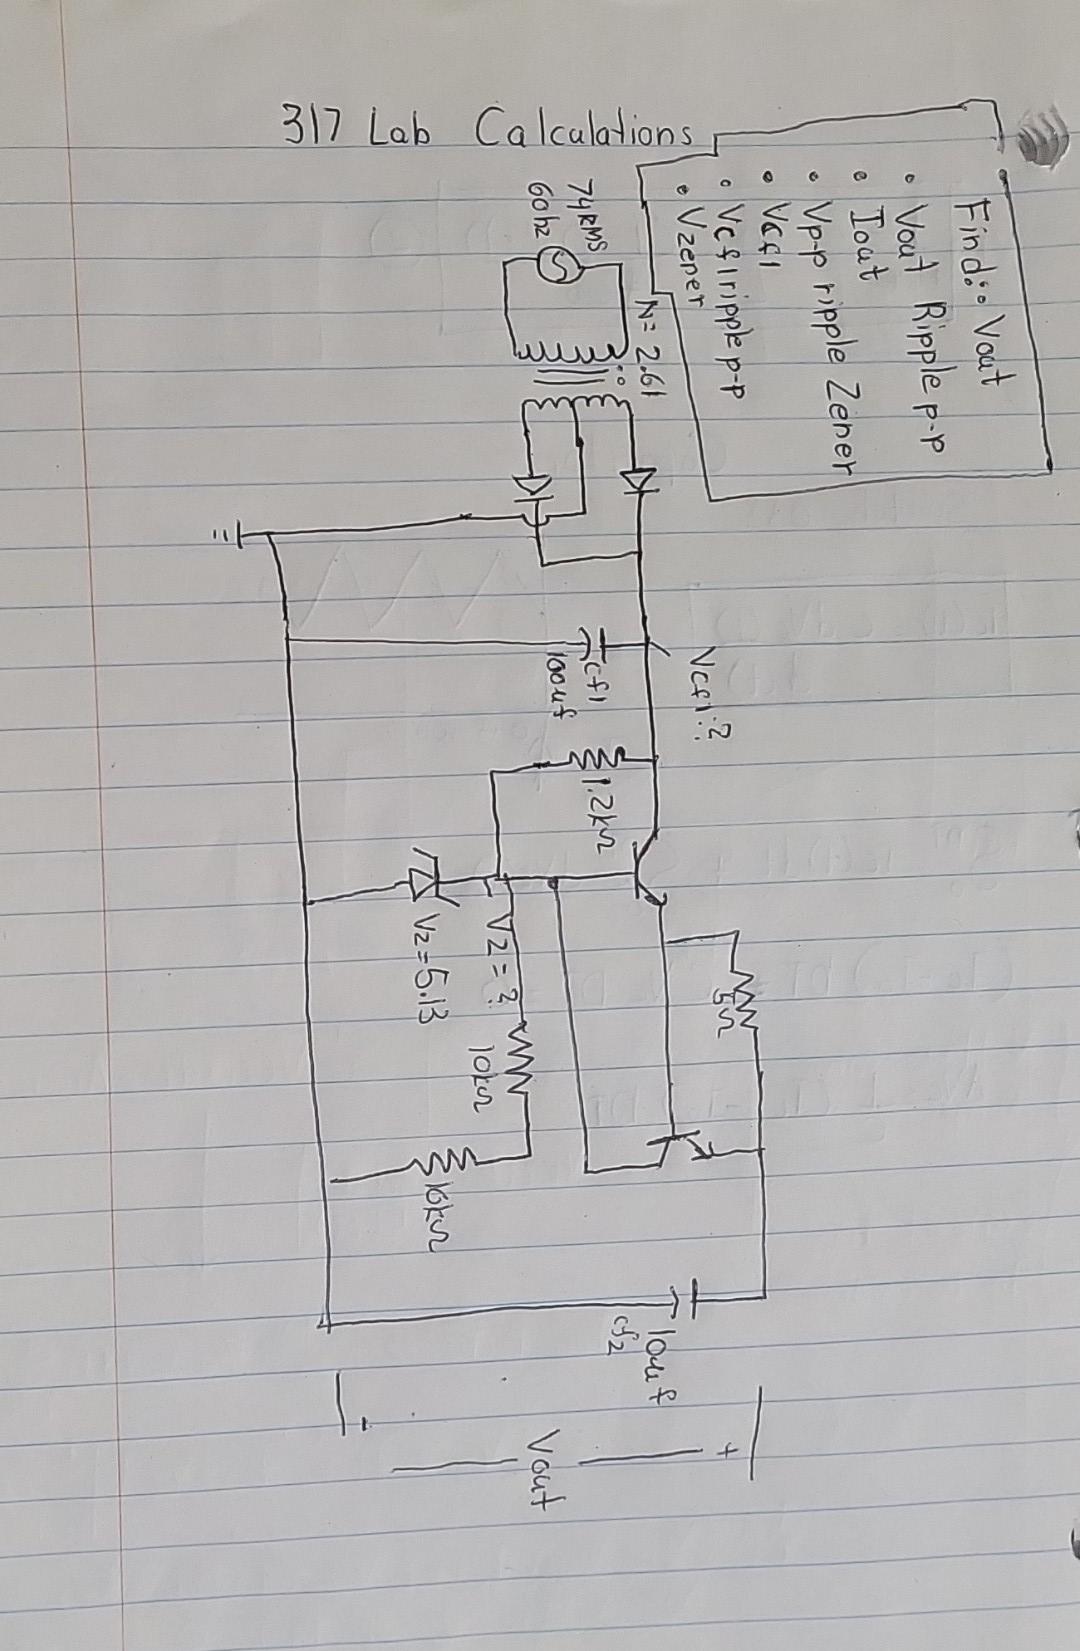 317 Lab Calculations
Find: Vout
Vout Ripple p-p
Iout
Vp-p ripple Zener
Vcf1
Vcf1 ripple p-p
Vzener
74RMS
60hz
N= 2.61
Vcf1:?
cf1
100uf
1.2kΩ
5Ω
Vz=?
Vz=5.13
10kΩ
10kΩ
10uf
cf2
+
Vout
-